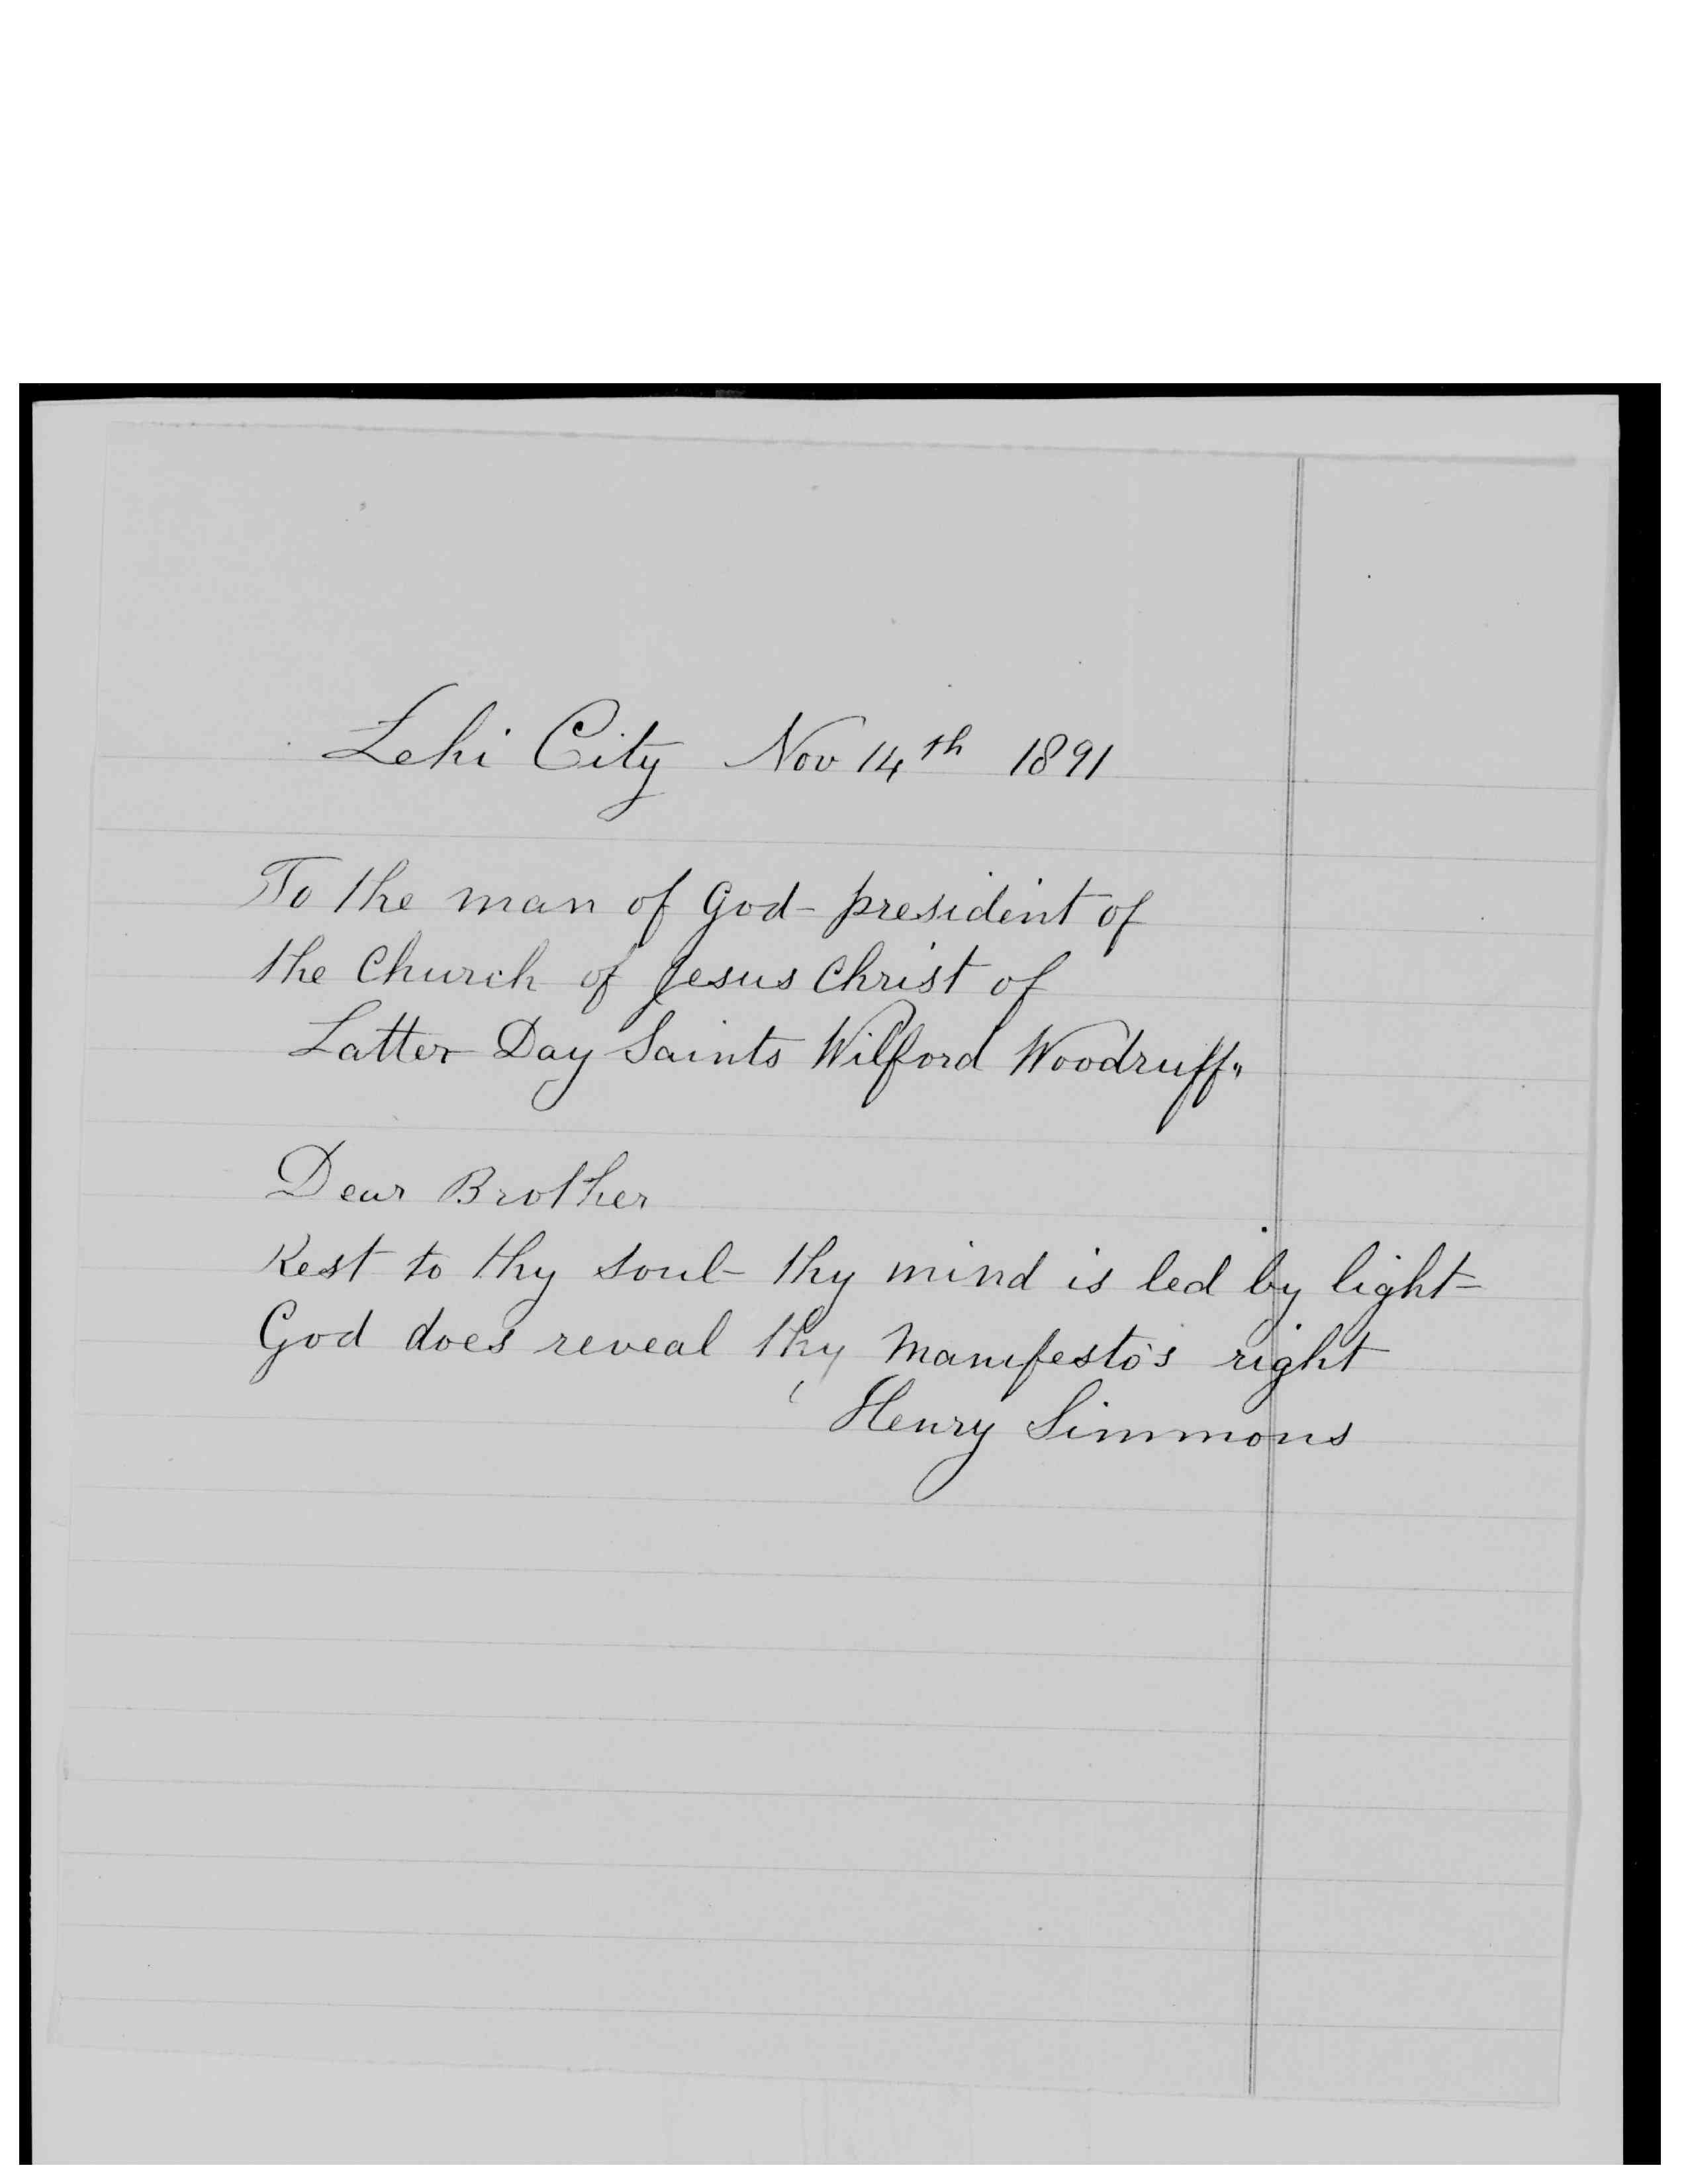 Lehi City Nov 14th 1891
To the man of God - president of
the Church of Jesus Christ of
Latter Day Saints Wilford Woodruff"
Dear Brother
Rest to thy soul - thy mind is led by light -
God does reveal thy Manifesto's right
Henry Simmons